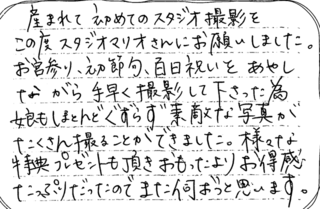 産まれて初めてのスタジオ撮影を
この度スタジオマリオさんにお願いしました。
お宮参り、初節句、百日祝いを あやし
ながら手早く撮影して下さった為
娘もほとんどぐずらず素敵な写真が
たくさん撮ることができました。様々な
特典プレゼントも頂きおもったよりお得感
たっぷりだったのでまた伺おうと思います。